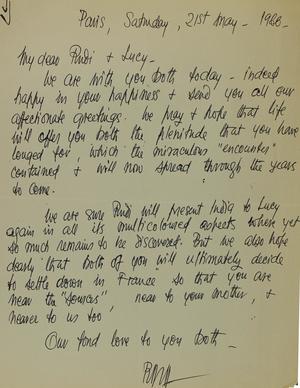 Paris, Saturday, 21st May - 1966 -
My dear Rudi & Lucy -
We are with you both today - indeed
happy in your happiness & send you all our
affectionate greetings. We pray & hope that life
will offer you both the plenitude that you have
longed for, which the miraculous "encounter"
contained & will now spread through the years
to come.
We are sure Rudi will present India to Lucy
again in all its multicoloured aspects where yet
so much remains to be discovered. But we also hope
dearly that both of you will ultimately decide
to settle down in France so that you are
near the "sources", near to your mother, &
nearer to us too,
Our fond love to you both -